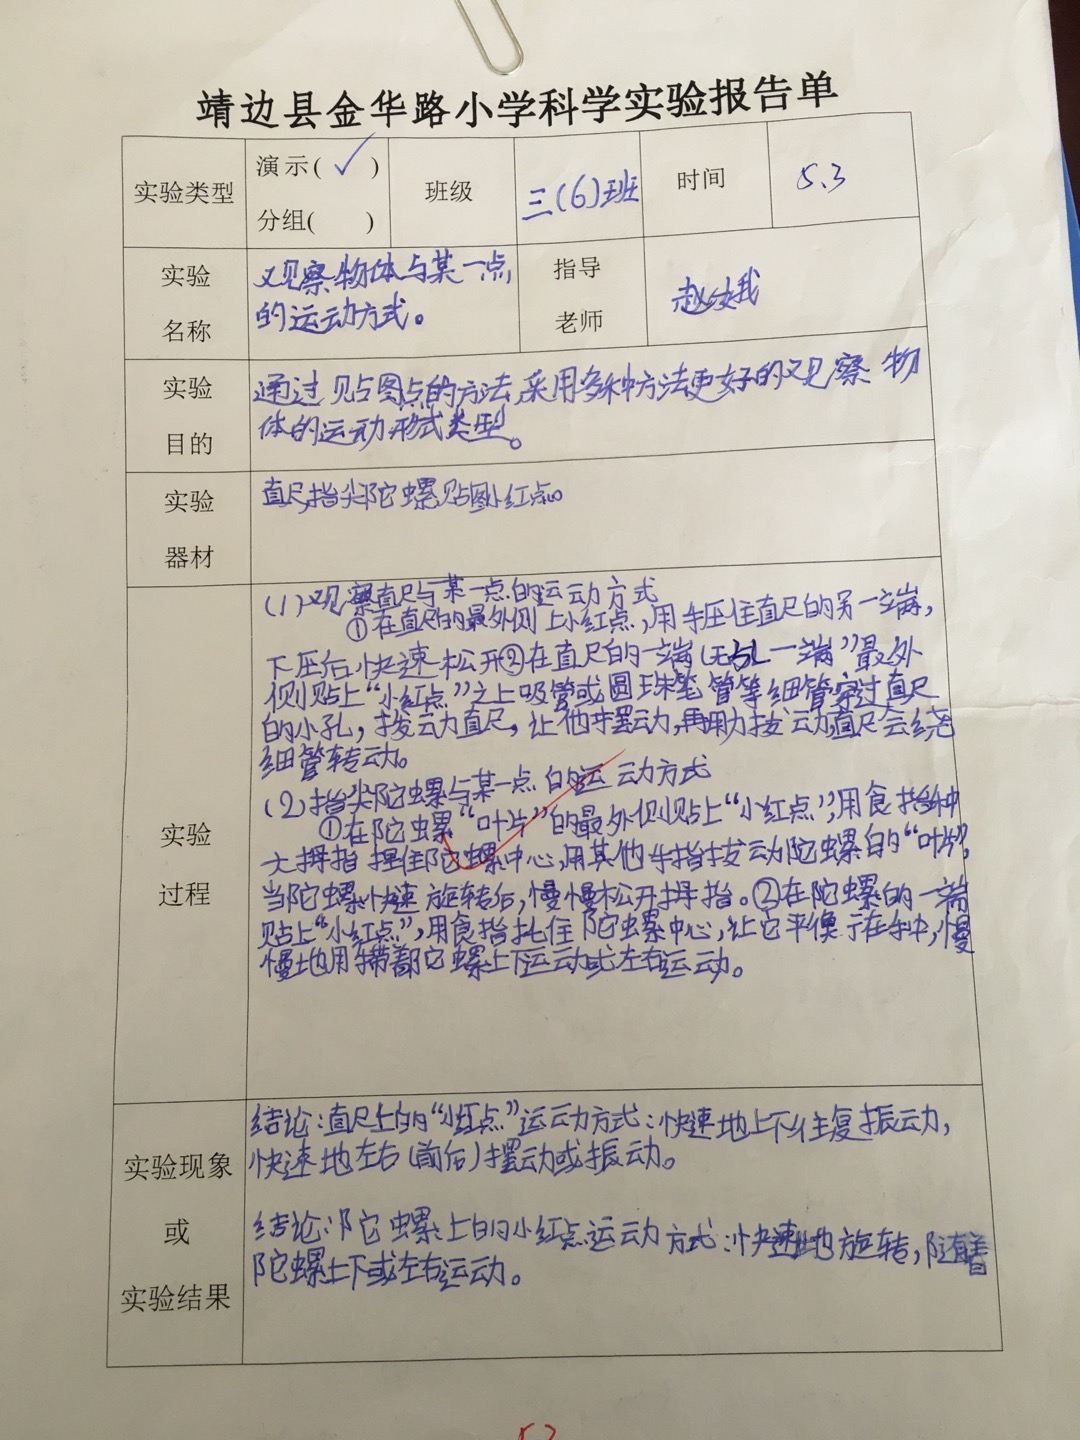 靖边县金华路小学科学实验报告单
实验类型
演示( ✓ )
分组(  )
班级
三(6)班
时间
5.3
实验
名称
观察物体与某一点
的运动方式。
指导
老师
实验
目的
通过贴图点的方法,采用多种方法更好的观察物
体的运动形式类型。
实验
器材
直尺,指尖陀螺,贴图小红点。
实验
过程
(1)观察直尺与某一点的运动方式
①在直尺的最外侧上小红点,用手压住直尺的另一端,
下压后快速松开②在直尺的一端(无孔一端”最外
侧贴上“小红点”之上吸管或圆珠笔管等细管穿过直尺
的小孔,拨动直尺,让他摆动,再用力拨动直尺会绕
细管转动。
(2)指尖陀螺与某一点的运动方式
①在陀螺“叶片”的最外侧贴上“小红点”,用食指和中
大拇指捏住陀螺中心,用其他手指拨动陀螺的“叶片”,
当陀螺快速旋转后,慢慢松开拇指。②在陀螺的一端
贴上“小红点”,用食指扎住陀螺中心,让它平衡于在手中,慢
慢地用手带着陀螺上下运动或左右运动。
实验现象
或
实验结果
结论:直尺上的“小红点”运动方式:快速地上下往复振动,
快速地左右(前后)摆动或振动。
结论:陀螺上的小红点运动方式:快速地旋转,随着
陀螺上下或左右运动。